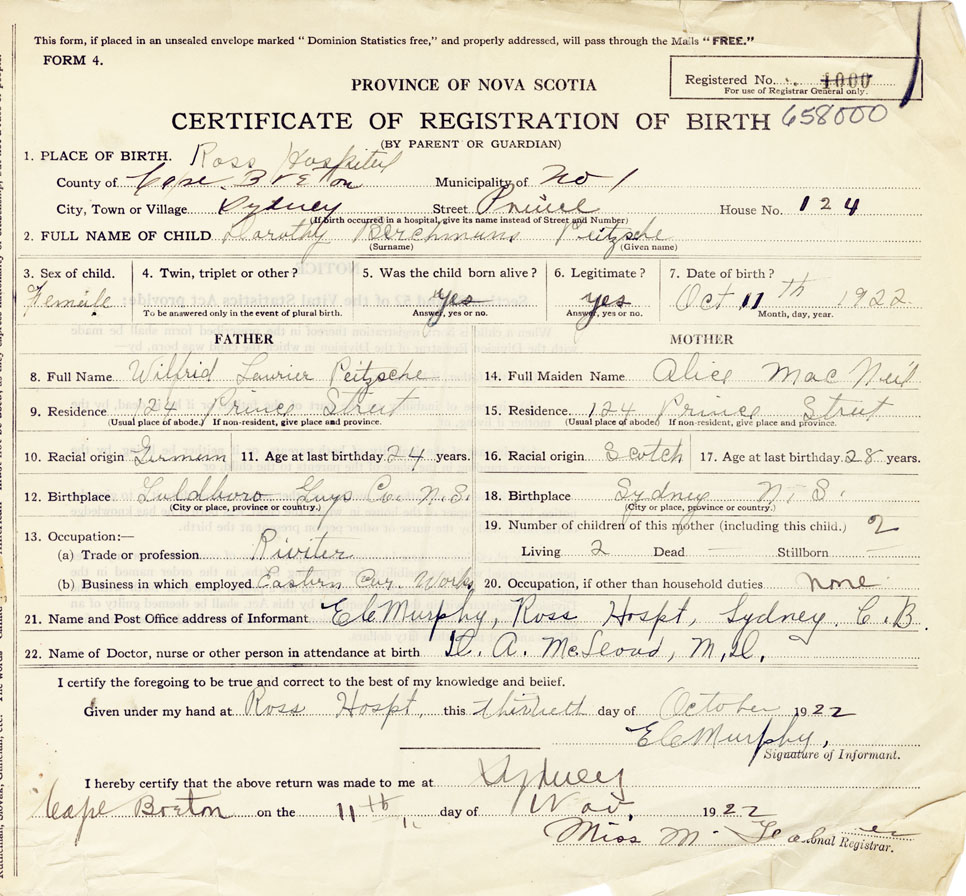 This form, if placed in an unsealed envelope marked “Dominion Statistics free,” and properly addressed, will pass through the Mails “FREE.”
FORM 4.
Registered No. 1000
For use of Registrar General only.
PROVINCE OF NOVA SCOTIA
CERTIFICATE OF REGISTRATION OF BIRTH 658000
(BY PARENT OR GUARDIAN)
1. PLACE OF BIRTH. Ross Hospital
County of Cape Breton Municipality of No 1
City, Town or Village Sydney Street Prince House No. 124
(If birth occurred in a hospital, give its name instead of Street and Number)
2. FULL NAME OF CHILD Dorothy Berchmans Peitzsche
(Surname) (Given name)
3. Sex of child. 4. Twin, triplet or other? 5. Was the child born alive? 6. Legitimate? 7. Date of birth?
Female yes yes Oct 11th 1922
To be answered only in the event of plural birth. Answer, yes or no. Answer, yes or no. Month, day, year.
FATHER MOTHER
8. Full Name Wilfrid Laurier Peitzsche 14. Full Maiden Name Alice MacNeil
9. Residence 124 Prince Street 15. Residence. 124 Prince Street
(Usual place of abode.) If non-resident, give place and province. (Usual place of abode) If non-resident, give place and province.
10. Racial origin German 11. Age at last birthday 24 years. 16. Racial origin Scotch 17. Age at last birthday 28 years.
12. Birthplace Guys Co. N.S. 18. Birthplace Sydney N.S.
(City or place, province or country.) (City or place, province or country.)
19. Number of children of this mother (including this child.) 2
13. Occupation:—
(a) Trade or profession Riviter Living 2 Dead — Stillborn —
(b) Business in which employed Eastern Car Works 20. Occupation, if other than household duties none
21. Name and Post Office address of Informant EC Murphy, Ross Hospt, Sydney. C.B.
22. Name of Doctor, nurse or other person in attendance at birth A. McLeod, M.D.
I certify the foregoing to be true and correct to the best of my knowledge and belief.
Given under my hand at Ross Hospt, this thirtieth day of October 1922
EC Murphy,
Signature of Informant.
I hereby certify that the above return was made to me at Sydney
Cape Breton on the 11th day of Nov. 1922
Miss M.
Registrar.